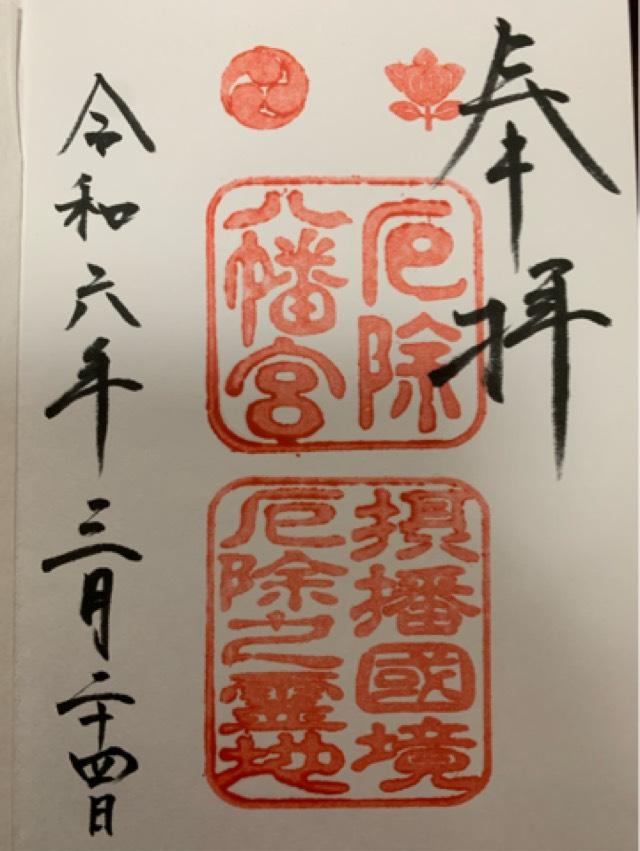 奉拝
厄除
八幡宮
摂播國境
厄除之霊地
令和六年三月二十四日